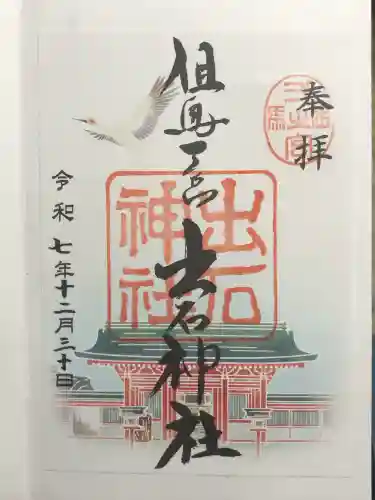 奉拝
但馬一宮
出石神社
出石
神社
令和七年十二月三十日